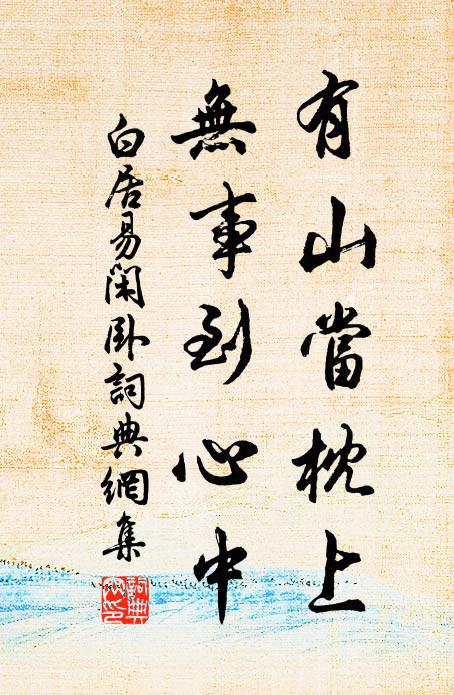 有山當枕上
無事到心中
白居易閑卧詞典網集